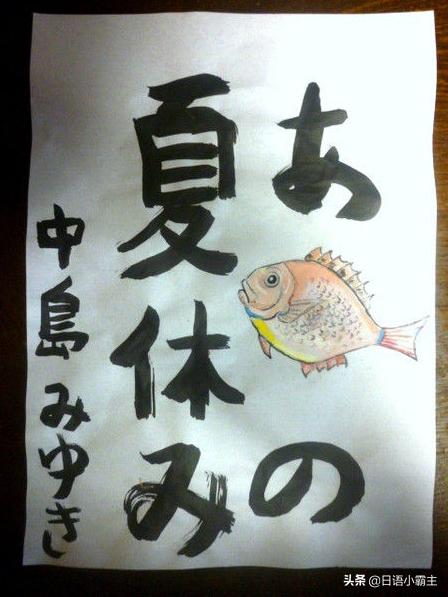 あの
夏休み
中島みゆき
头条 @日语小霸主